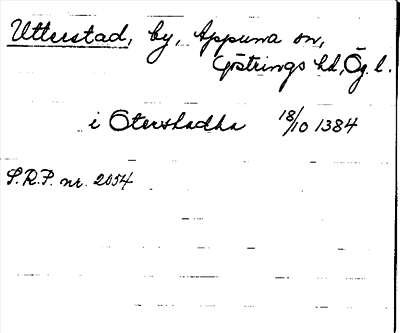 Utterstad, by, Appuna sn,
Göstrings hd, Ög. l.
i Oterstadha 18/10 1384
S.R.P. nr. 2054